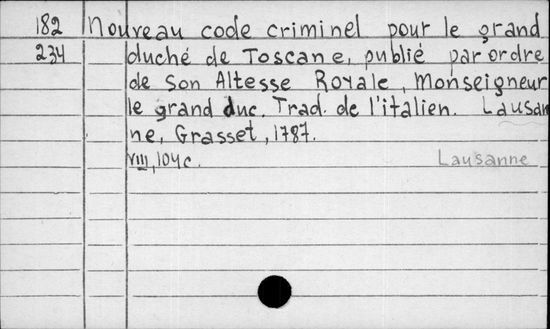 182 Nouveau code criminel pour le grand
234 duché de Toscane, publié par ordre
de Son Altesse Royale, Monseigneur
le grand duc. Trad. de l'italien. Lausan
ne, Grasset, 1787.
VIII, 104 c. Lausanne